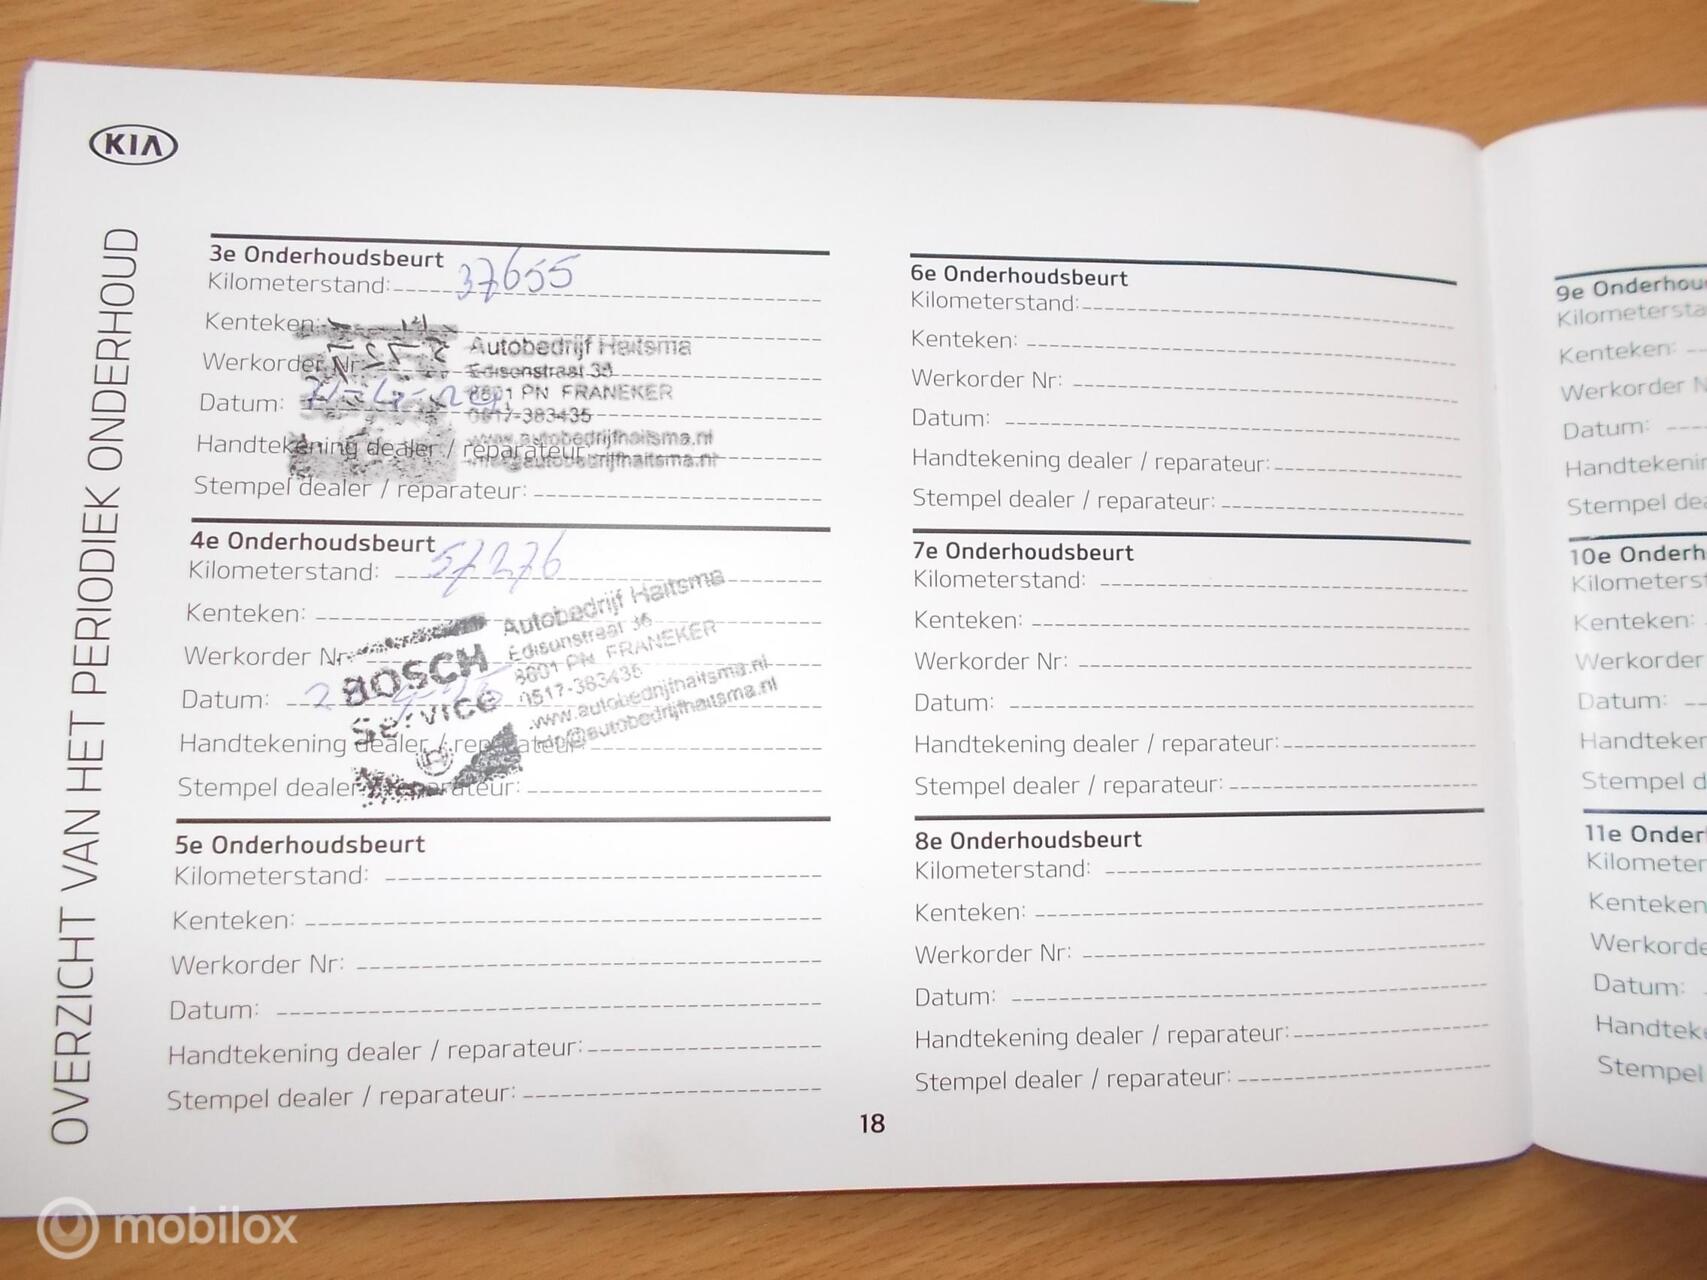 KIA
OVERZICHT VAN HET PERIODIEK ONDERHOUD
3e Onderhoudsbeurt
Kilometerstand: 37655
Kenteken:
Werkorder Nr
Datum:
Handtekening dealer / reparateur:
Stempel dealer / reparateur:
Autobedrijf Haitsma
Edisonstraat 36
8801 PN FRANEKER
0517-383435
www.autobedrijfhaitsma.nl
info@autobedrijfhaitsma.nl
4e Onderhoudsbeurt
Kilometerstand: 57276
Kenteken:
Werkorder Nr
Datum:
Handtekening dealer / reparateur:
Stempel dealer / reparateur:
BOSCH
Service
Autobedrijf Haitsma
Edisonstraat 36
8801 PN FRANEKER
0517-383435
www.autobedrijfhaitsma.nl
info@autobedrijfhaitsma.nl
5e Onderhoudsbeurt
Kilometerstand:
Kenteken:
Werkorder Nr:
Datum:
Handtekening dealer / reparateur:
Stempel dealer / reparateur:
6e Onderhoudsbeurt
Kilometerstand:
Kenteken:
Werkorder Nr:
Datum:
Handtekening dealer / reparateur:
Stempel dealer / reparateur:
7e Onderhoudsbeurt
Kilometerstand:
Kenteken:
Werkorder Nr:
Datum:
Handtekening dealer / reparateur:
Stempel dealer / reparateur:
8e Onderhoudsbeurt
Kilometerstand:
Kenteken:
Werkorder Nr:
Datum:
Handtekening dealer / reparateur:
Stempel dealer / reparateur:
18
9e Onderhou
Kilometersta
Kenteken:
Werkorder N
Datum:
Handtekenin
Stempel dea
10e Onderh
Kilometerst
Kenteken:
Werkorder
Datum:
Handteken
Stempel d
11e Onder
Kilometer
Kenteken
Werkorde
Datum:
Handtek
Stempel
mobilox